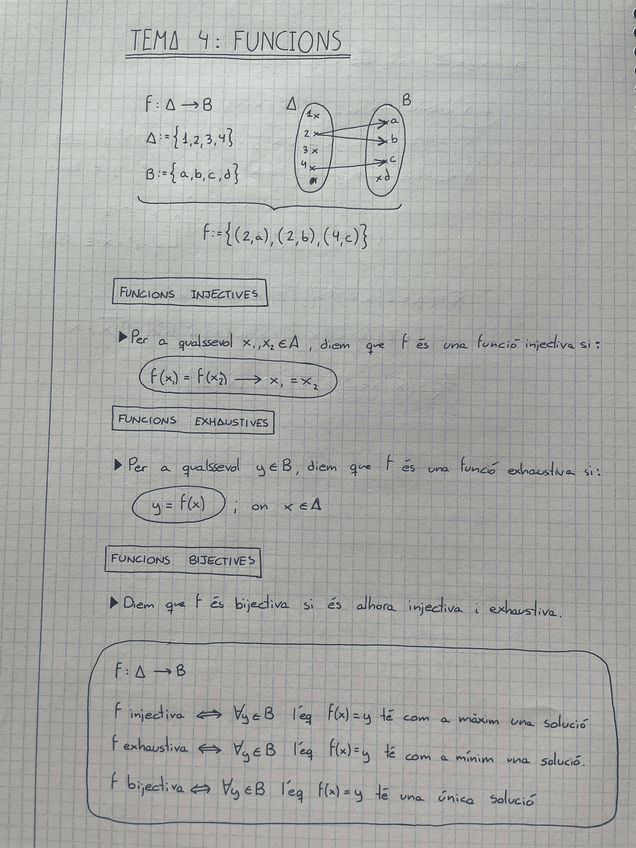 TEMA 4: FUNCIONS
f: A → B
A:={1,2,3,4}
B:={a,b,c,d}
A B
1x
2x
3x
4x
xa
xb
xc
xd
f:={(2,a),(2,b),(4,c)}
FUNCIONS INJECTIVES
▶Per a qualssevol x₁,x₂∈A, diem que f és una funció injectiva si:
f(x₁) = f(x₂) → x₁ = x₂
FUNCIONS EXHAUSTIVES
▶ Per a qualssevol y∈B, diem que f és una funció exhaustiva si:
y = f(x) ; on x∈A
FUNCIONS BIJECTIVES
▶ Diem que f és bijectiva si és alhora injectiva i exhaustiva.
f: A → B
f injectiva ⇔ ∀y∈B l'eq f(x)=y té com a màxim una solució
f exhaustiva ⇔ ∀y∈B l'eq f(x)=y té com a mínim una solució.
f bijectiva ⇔ ∀y∈B l'eq f(x)=y té una única solució